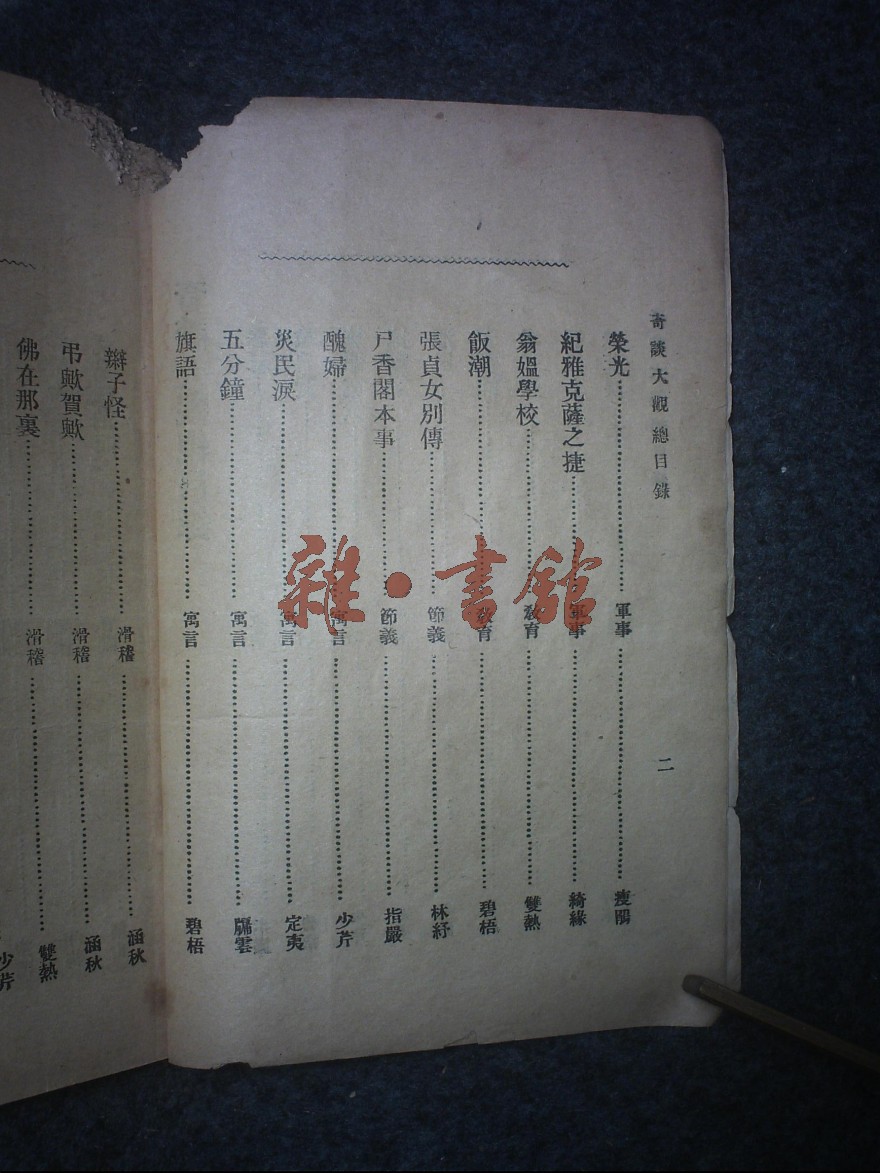 奇談大觀總目錄
二
榮光 軍事 瘦鵑
紀雅克薩之捷 軍事 綺緣
翁媼學校 教育 雙熱
飯潮 教育 碧梧
張貞女別傳 節義 林紓
尸香閣本事 節義 指嚴
醜婦 寓言 少芹
災民淚 寓言 定夷
五分鐘 寓言 牖雲
旗語 寓言 碧梧
辮子怪 滑稽 涵秋
弔歟賀歟 滑稽 涵秋
佛在那裏 滑稽 雙熱
少芹
雜·書館